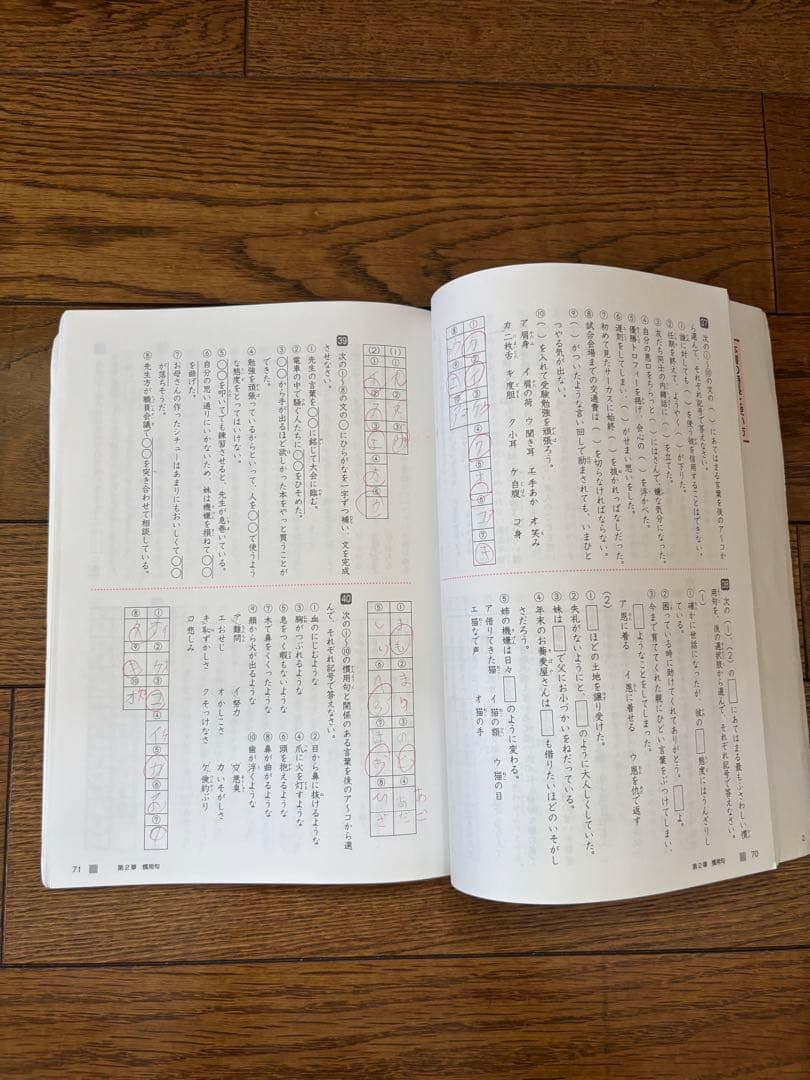 37 次の①〜⑩の文の( )にあてはまる言葉を後のア〜コか
ら選んで、それぞれ記号で答えなさい。
① 誰に対しても( )を使う彼を信用することはできない。
② 任期を終えて、ようやく( )が下りた。
③ 友だち同士の内緒話に( )を立てた。
④ 自分の悪口をちらっと( )にはさんで、嫌な気分になった。
⑤ 優勝トロフィーを掲げ、会心の( )を浮かべた。
⑥ 遅刻をしてしまい、( )がせまい思いをした。
⑦ 初めて見たサーカスに始終( )を抜かれっぱなしだった。
⑧ 試合会場までの交通費は( )を切らなければならない。
⑨ ( )がついたような言い回しで励まされても、いまひと
つやる気が出ない。
⑩ ( )を入れて受験勉強を頑張ろう。
ア 肩身 イ 肩の荷 ウ 聞き耳 エ 手あか オ 笑み
カ 二枚舌 キ 度胆 ク 小耳 ケ 自腹 コ 身
38 次の(1)、(2)の□にあてはまる最もふさわしい慣
用句を、後の選択肢から選んで、それぞれ記号で答えなさい。
(1)
① 確かに世話になったが、彼の□態度にはうんざりし
ている。
② 困っている時に助けてくれてありがとう。□よ。
③ 今まで育ててくれた親にひどい言葉をぶつけてしまい、
□ようなことをしてしまった。
ア 恩に着る イ 恩に着せる ウ 恩を仇で返す
(2)
① □ほどの土地を譲り受けた。
② 失礼がないようにと□のように大人しくしていた。
③ 妹は□で父にお小づかいをねだっている。
④ 年末のお蕎麦屋さんは□も借りたいほどのいそがし
さだろう。
⑤ 姉の機嫌は日々□のように変わる。
ア 借りてきた猫 イ 猫の額 ウ 猫の目
エ 猫なで声 オ 猫の手
第2章 慣用句
70
39 次の①〜⑧の文の○にひらがなを一字ずつ補い、文を完成
させなさい。
① 先生の言葉を○○に銘じて大会に臨む。
② 電車の中で騒ぐ人たちに○○をひそめた。
③ ○○から手が出るほど欲しかった本をやっと買うことが
できた。
④ 勉強を頑張っているからといって、人を○○で使うよう
な態度をとってはいけない。
⑤ ○○を叩いてでも練習させると、先生が息巻いている。
⑥ 自分の思い通りにいかないため、妹は機嫌を損ねて○○
を曲げた。
⑦ お母さんの作ったシチューはあまりにもおいしくて○○
が落ちそうだ。
⑧ 先生方が職員会議で○○を突き合わせて相談している。
40 次の①〜⑩の慣用句と関係のある言葉を後のア〜コから選
んで、それぞれ記号で答えなさい。
① 血のにじむような ② 目から鼻に抜けるような
③ 胸がつぶれるような ④ 爪に火を灯すような
⑤ 息をつく暇もないような ⑥ 頭を抱えるような
⑦ 木で鼻をくくったような ⑧ 鼻が曲がるような
⑨ 顔から火が出るような ⑩ 歯が浮くような
ア 難問 イ 努力 ウ 悪臭
エ おせじ オ かしこさ カ いそがしさ
キ 恥ずかしさ ク そっけなさ ケ 倹約ぶり
コ 悲しみ
第2章 慣用句
71